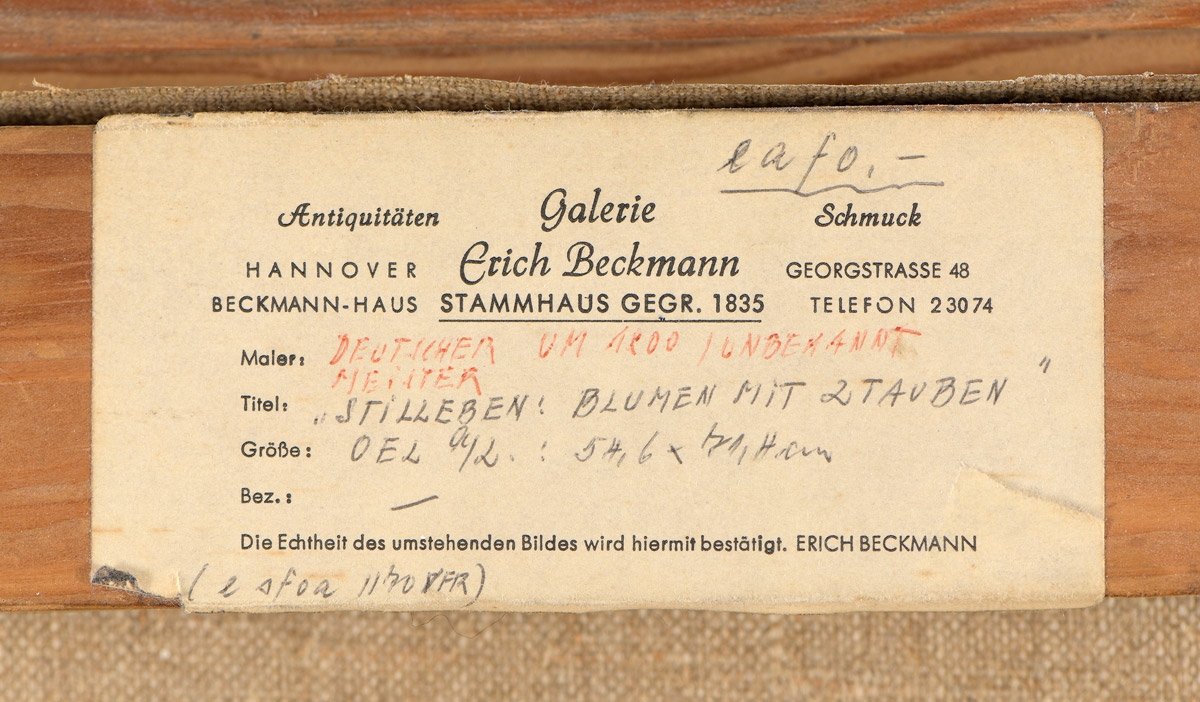 eafo.–
Antiquitäten Galerie Schmuck
HANNOVER Erich Beckmann GEORGSTRASSE 48
BECKMANN-HAUS STAMMHAUS GEGR. 1835 TELEFON 23074
Maler: DEUTSCHER UM 1800 / UNBEKANNT
MEISTER
Titel: „STILLEBEN: BLUMEN MIT 2 TAUBEN"
Größe: OEL a/L. : 54,6 x 71,4 cm
Bez.: —
Die Echtheit des umstehenden Bildes wird hiermit bestätigt. ERICH BECKMANN